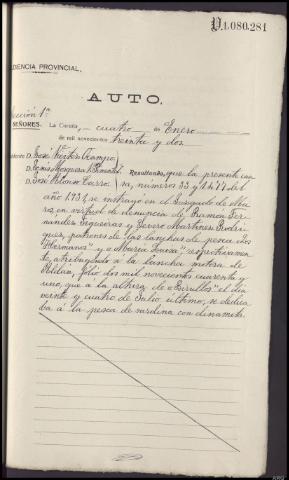 D.1.080.281
DIENCIA PROVINCIAL,
AUTO.
Sección 1ª
SEÑORES. La Coruña, cuatro de Enero
de mil novecientos treinta y dos
D. José
D.
D. José Alonso Resultando, que la presente cau
sa, números 33 y 1.477 del
año 1.931, se instruyó en el Juzgado de
en virtud de denuncia de Ramón Fer
nández y Severo Martínez Rodrí
guez, patrones de las lanchas de pesca "dos
Hermanos" y "María", respectivamen
te, atribuyendo á la lancha motora de
folio dos mil novecientos cuarenta y
uno, que a la altura de el día
veinte y cuatro de Julio último, se dedica
ba á la pesca de sardina con dinamita.